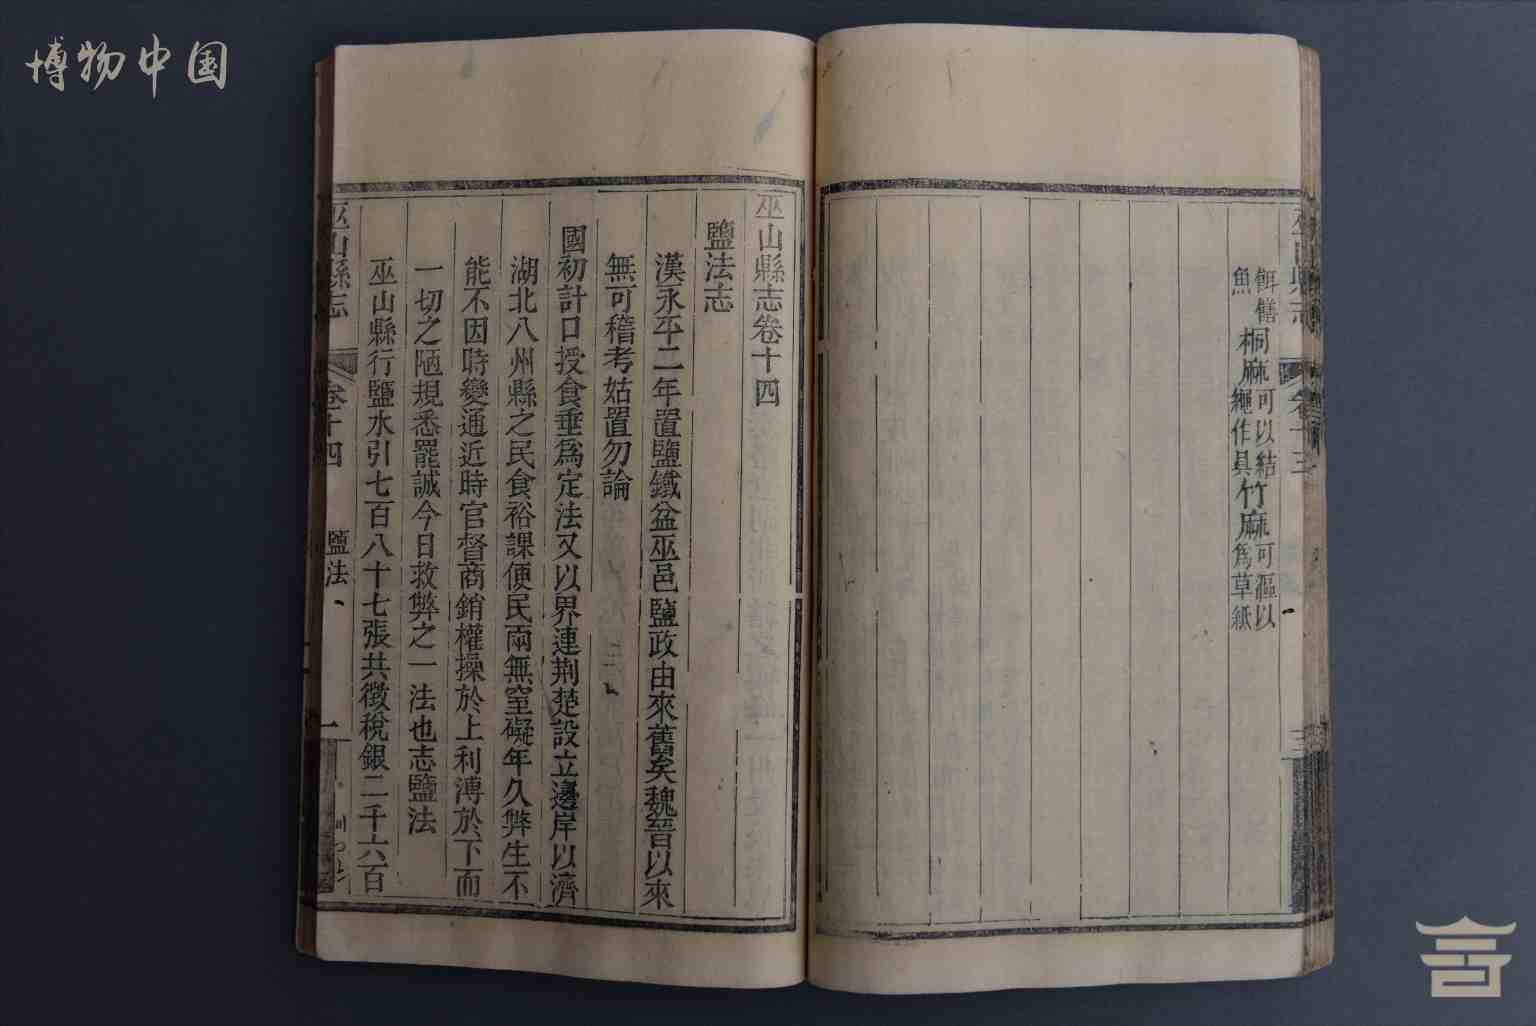 博物中国
餌饍桐麻可以結竹麻可漚以
魚繩作具為草紙
巫山縣志卷十四
鹽法志
漢永平二年置鹽鐵盆巫邑鹽政由來舊矣魏晉以來
無可稽考姑置勿論
國初計口授食垂為定法又以界連荆楚設立邊岸以濟
湖北八州縣之民食裕課便民兩無窒礙年久弊生不
能不因時變通近時官督商銷權操於上利溥於下而
一切之陋規悉罷誠今日救弊之一法也志鹽法
巫山縣行鹽水引七百八十七張共徵稅銀二千六百
巫山縣志 卷十四 鹽法 一